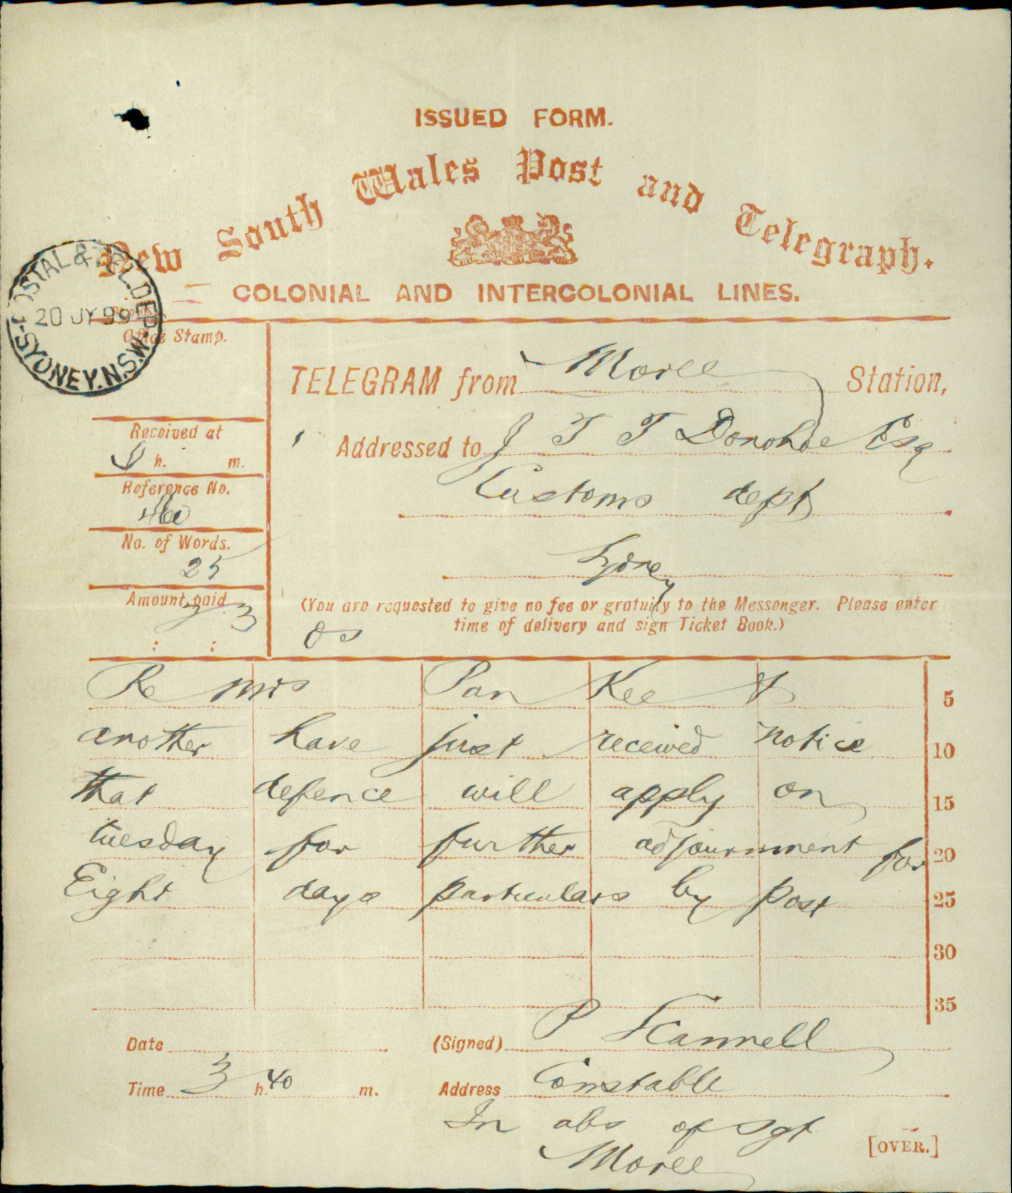 ISSUED FORM.
New South Wales Post and Telegraph.
COLONIAL AND INTERCOLONIAL LINES.
POSTAL & TEL. DEP.
20 JY 99
SYDNEY. N.S.W.
Office Stamp.
TELEGRAM from Moree Station,
Received at
h. m.
Addressed to J T T Donohoe Esq
Reference No.
460
Customs dept
No. of Words.
25
Sydney
Amount paid
(You are requested to give no fee or gratuity to the Messenger. Please enter
time of delivery and sign Ticket Book.)
Os
: :
Re mrs Pan Kee & 5
another have just received notice 10
that defence will apply on 15
tuesday for further adjournment for 20
Eight days particulars by post 25
30
35
Date (Signed) P Scannell
Time 3 h. 40 m. Address Constable
In abs of Sgt
Moree
[OVER.]